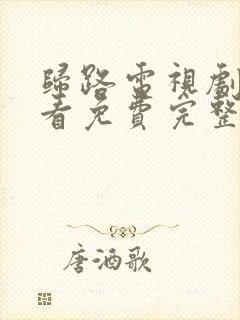 歸路電視劇
看免費完整
唐酒歌